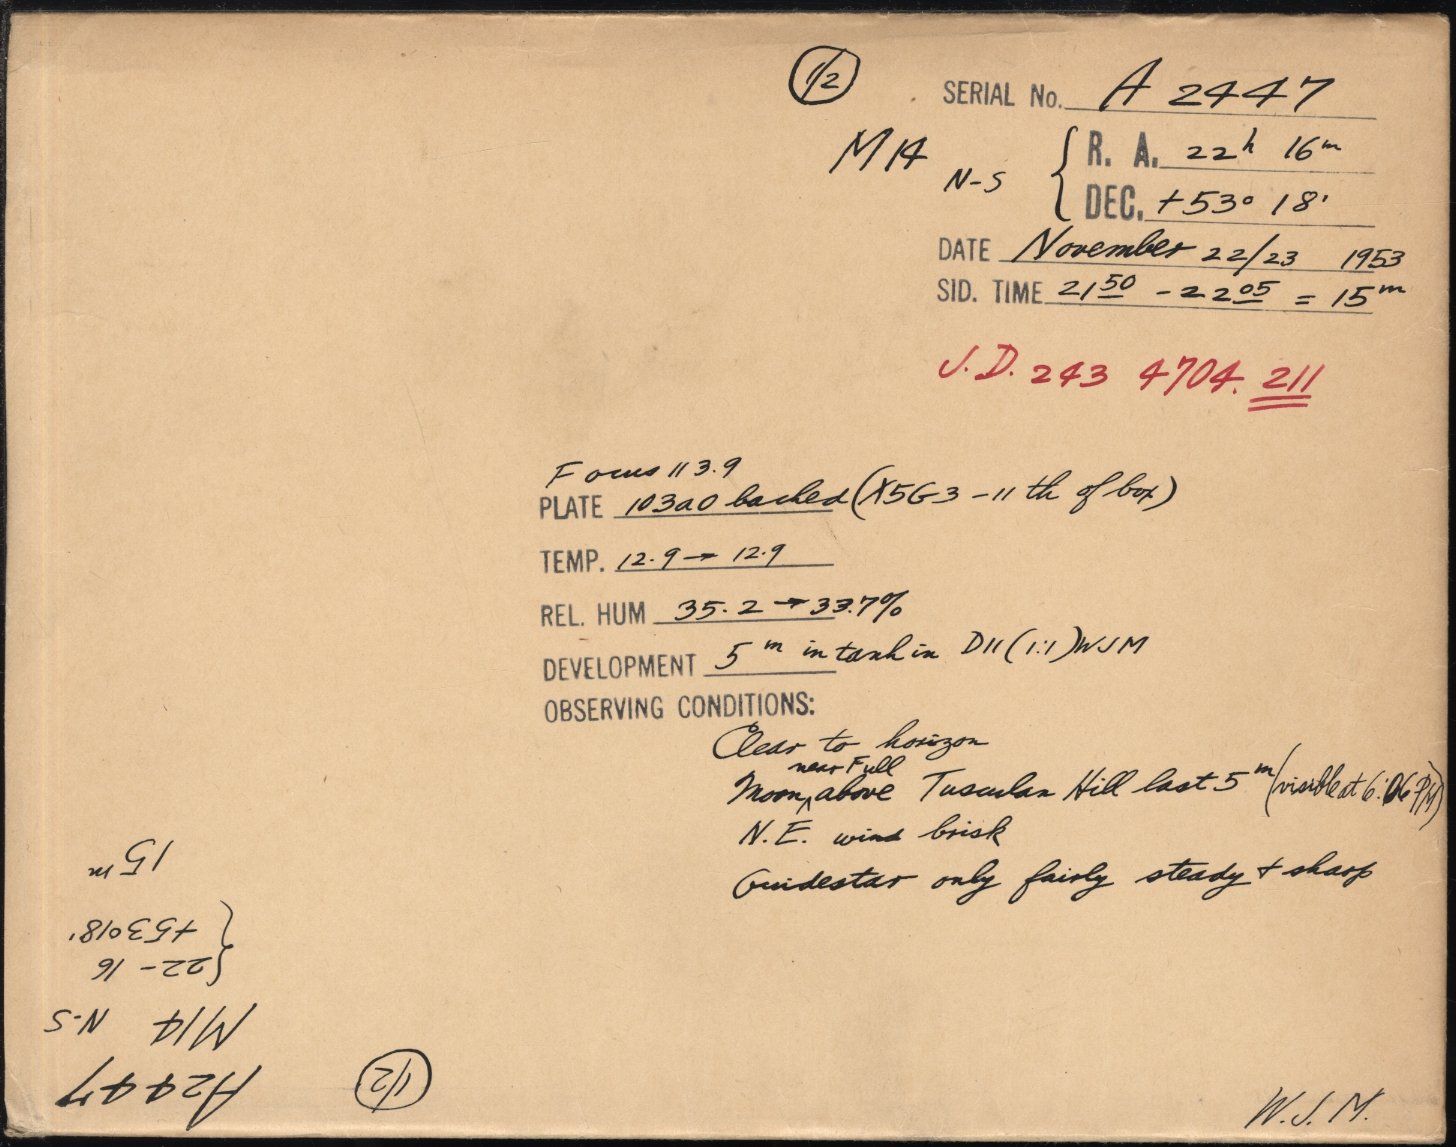 1/2
SERIAL No. A 2447
M 14 N-S { R. A. 22h 16m
DEC. +53° 18'
DATE November 22/23 1953
SID. TIME 21 50 - 22 05 = 15m
J.D. 243 4704.211
Focus 113.9
PLATE 103a0 backed (X5G3 - 11 th of box)
TEMP. 12.9 → 12.9
REL. HUM 35.2 → 33.7%
DEVELOPMENT 5 m in tank in D11 (1:1) WJM
OBSERVING CONDITIONS:
Clear to horizon
near Full
Moon ^ above Tusculan Hill last 5 m (visible at 6:06 PM)
N.E. wind brisk
Guidestar only fairly steady + sharp
W.J.M.
A2447 1/2
M14 N-S
{ 22 - 16
+53°18'
15m